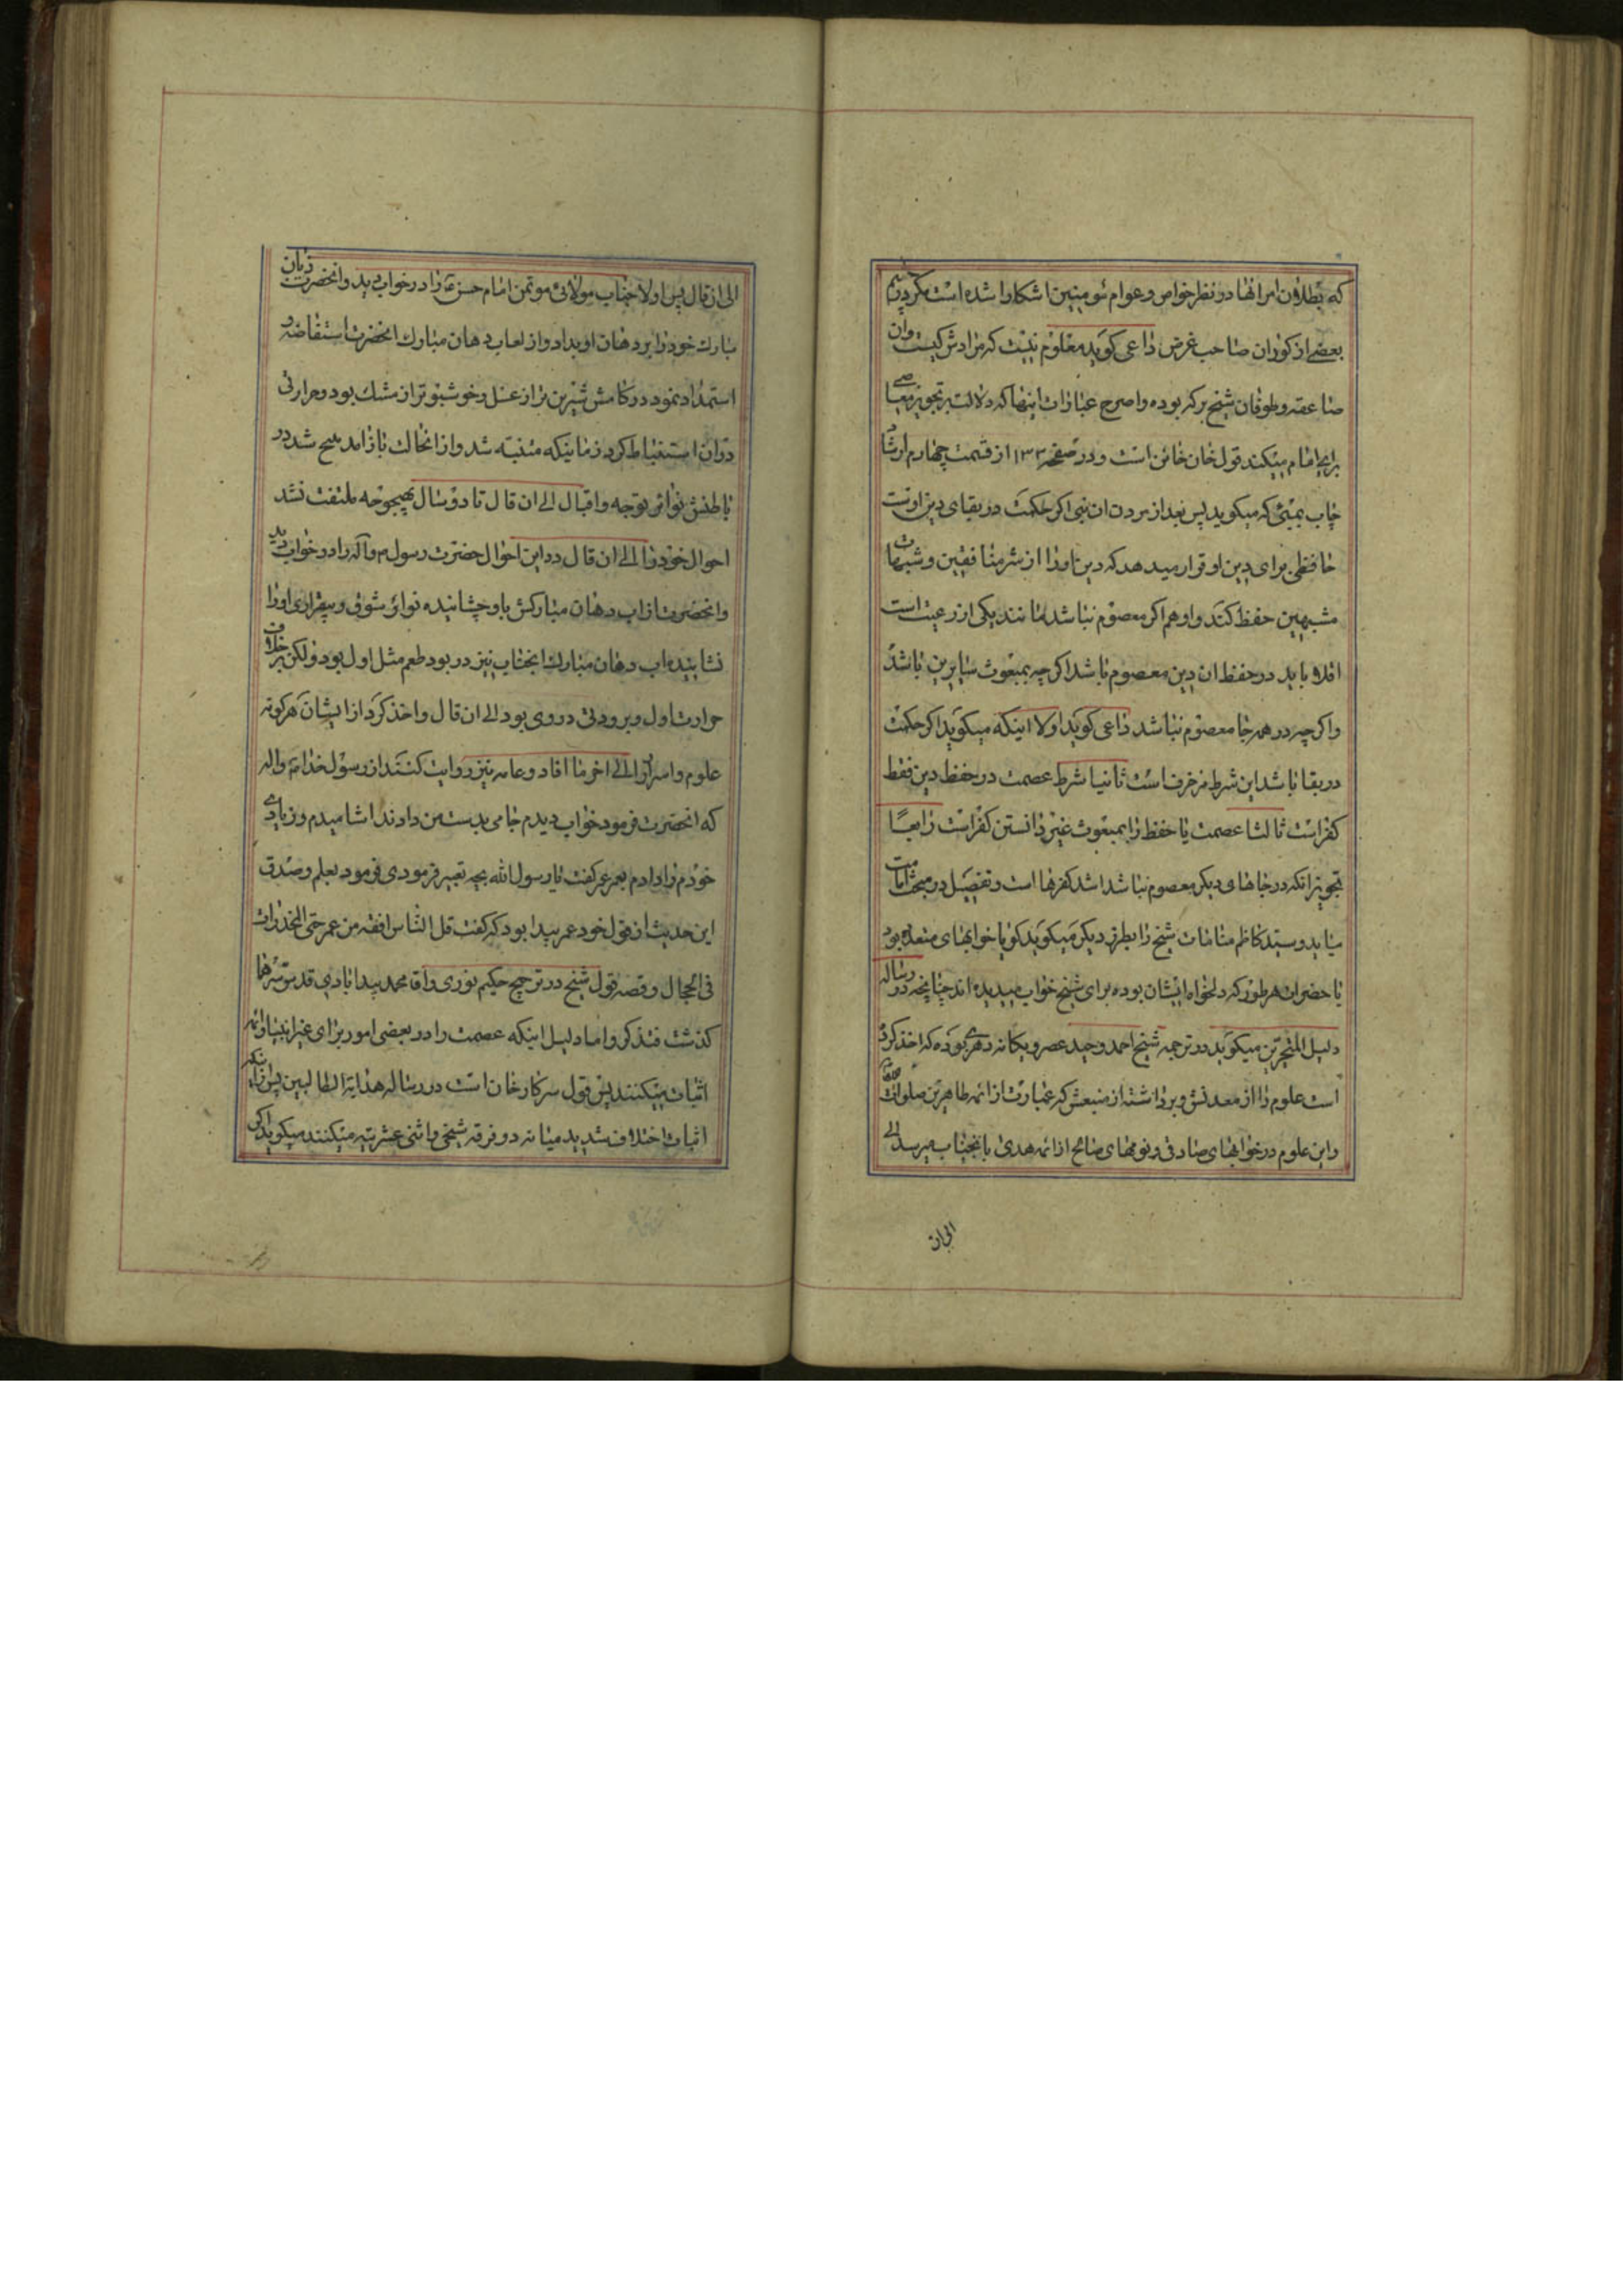 که بطلان امر انها در نظر خواص و عوام مومنین اشکارا شده است مگر در چشم
بعضی از کوران صاحب غرض داعی کوید معلوم نیست که مرادش کیست وان
صاعقه و طوفان شیخ برکه بوده واصرح عبارات اینها که دلالت بر تجویز معاصی
برای امام میکند قول خان خائن است و در صفحه ۱۳۳ از قسمت چهارم ارشاد
چاپ بمبئی که میکوید پس بعد از مردن ان نبی اکر حکمت در بقای دین اوست
حافظی برای دین او قرار میدهد که دین او را از شر منافقین و شبهات
مشبهین حفظ کند و او هم اکر معصوم نباشد مانند یکی از رعیت است
اقلا باید در حفظ ان دین معصوم باشد اکرچه بمبعوث سایرین باشد
واکرچه در همه جا معصوم نباشد داعی کوید اولا اینکه میکوید اکر حکمت
در بقا باشد این شرط مزخرف است ثانیا شرط عصمت در حفظ دین فقط
کفر است ثالثا عصمت یا حفظ را بمبعوث غیر دانستن کفر است رابعا
تجویز انکه در جاهای دیکر معصوم نباشد اشد کفرها است و تفصیل در مبحث امامت
میاید و سید کاظم منامات شیخ را بطرز دیکر میکوید کویا خوابهای متعدد بوده
یا حضرات هر طور که دلخواه ایشان بوده برای شیخ خواب میدیده اند چنانچه در رساله
دلیل المتحیرین میکوید در ترجمه شیخ احمد وحید عصر و یکانه دهر بوده که اخذ کرده
است علوم را از معدنش و برداشته از منبعش که عبارت از ائمه طاهرین صلوات الله
و این علوم در خوابهای صادق و نومهای صالح از ائمه هدی بانجناب میرسد الی
الی ان
الی ان قال پس اولا جناب مولائی موتمن امام حسن ع را در خواب دید وانحضرت زبان
مبارك خود را بر دهان او بداد و از لعاب دهان مبارك انحضرت استفاضه و
استمداد نمود در کامش شیرین تر از عسل و خوشبوتر از مشك بود و حرارتی
در ان استنباط کرد زمانیکه متنبه شد و از انحالت باز امد مهیج شد در
باطنش نوائر توجه و اقبال الی ان قال تا دو سال بهیچوجه ملتفت نشد
احوال خود را الی ان قال در این احوال حضرت رسول ص و اله را در خواب دید
وانحضرت از اب دهان مبارکش باو چشانیده نوائر شوق و بیقراری او را
نشانیده اب دهان مبارك انجناب نیز در بود طعم مثل اول بود ولکن برخلاف
حرارت اول و برودتی در وی بود الی ان قال و اخذ کرد از ایشان هر کونه
علوم و اسرار را الی اخر ما افاد و عامه نیز روایت کنند از رسول خدا ص واله
که انحضرت فرمود خواب دیدم جامی بدست من دادند اشامیدم و زیادی
خودم را دادم بعمر عمر کفت یا رسول الله بچه تعبیر فرمودی فرمود بعلم و صدق
این حدیث از قول خود عمر پیدا بود که کفت قل الناس افقه من عمر حتی المخدرات
فی الحجال و قصه قول شیخ در ترجیح حکیم نوری و اقا محمد بیدابادی قدس سرهما
کذشت فتذکر و اما دلیل اینکه عصمت را در بعضی امور برای غیر انبیا و ائمه
اثبات میکنند پس قول سرکار خان است در رساله هدایة الطالبین پس از انکه
اثبات اختلاف شدید میانه دو فرقه شیخی و اثنی عشریه میکنند میکوید اکر